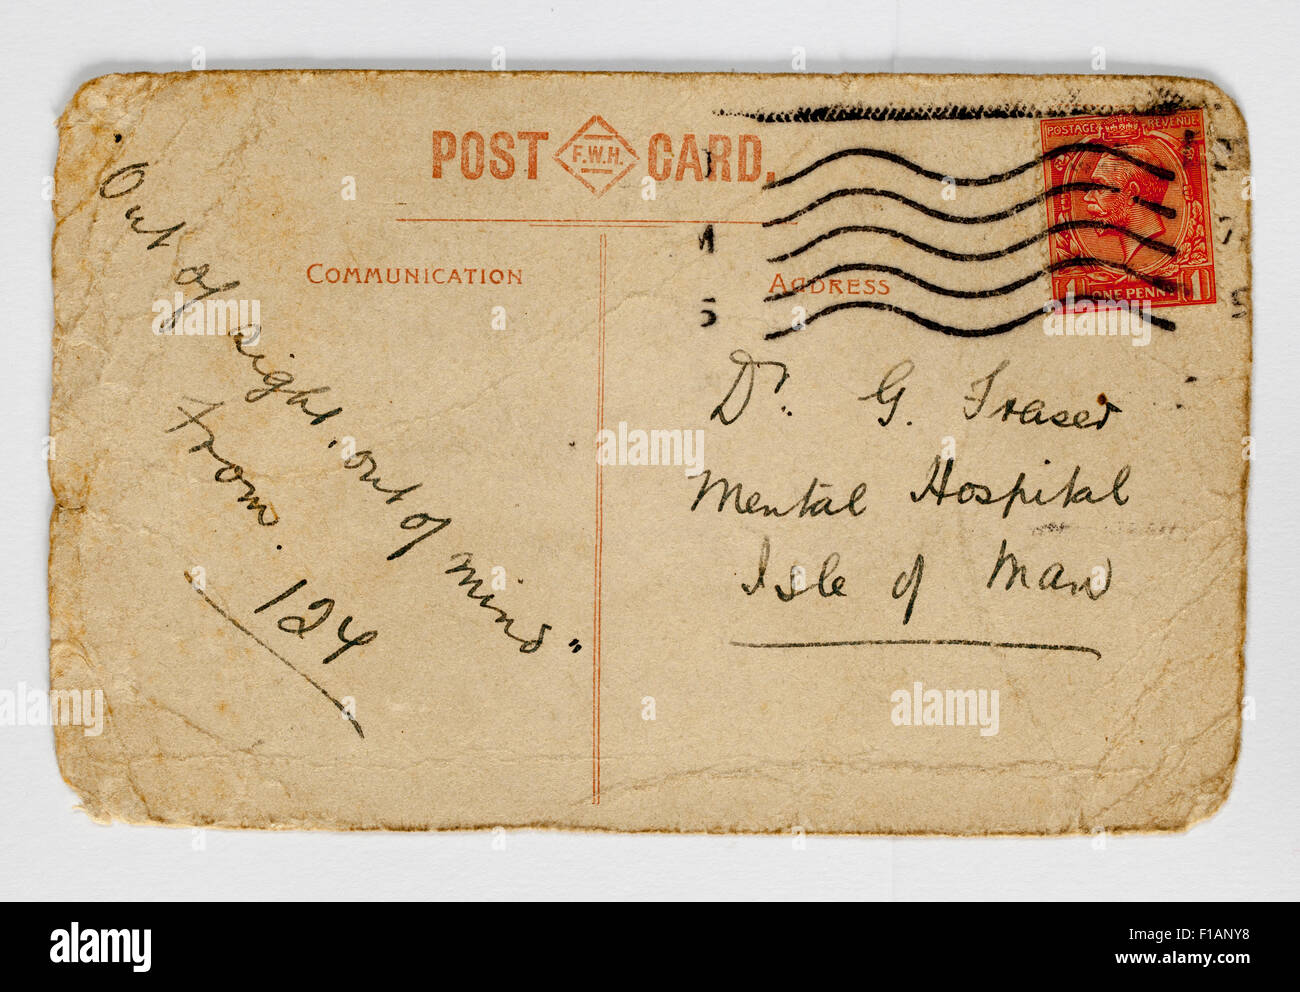 POST F.W.H. CARD.
COMMUNICATION
ADDRESS
POSTAGE REVENUE
1 ONE PENNY 1
"Out of sight, out of mind"
From. 124
Dr. G. Fraser
Mental Hospital
Isle of Man
alamy
Image ID: F1ANY8
www.alamy.com